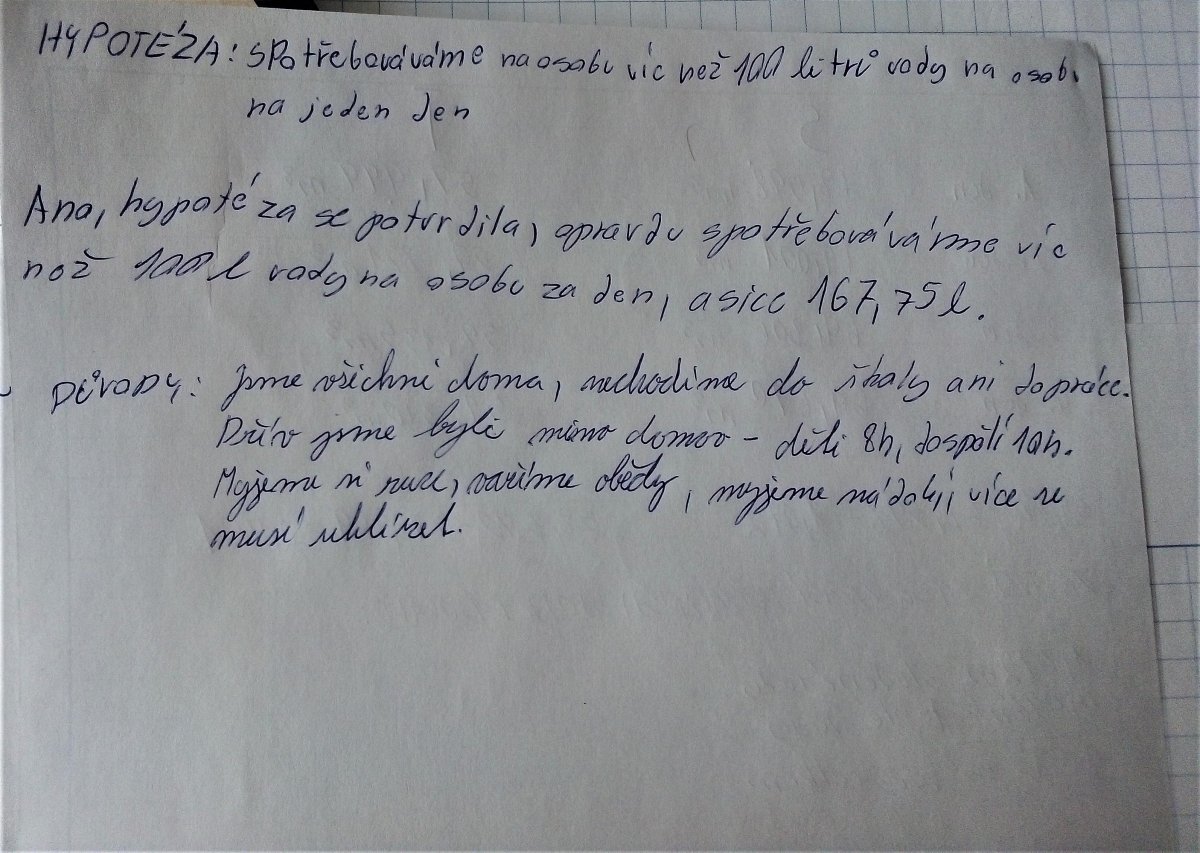 HYPOTÉZA: SPotřebováváme na osobu víc než 100 litrů vody na osob.
na jeden den
Ano, hypotéza se potvrdila, opravdu spotřebováváme víc
než 100 l vody na osobu za den, a sice 167,75 l.
DŮVODY: Jsme všichni doma, nechodíme do školy ani do práce.
Dřív jsme byli mimo domov - děti 8h, dospělí 10h.
Myjeme si ruce, vaříme obědy, myjeme nádobí, více se
musí uklízet.